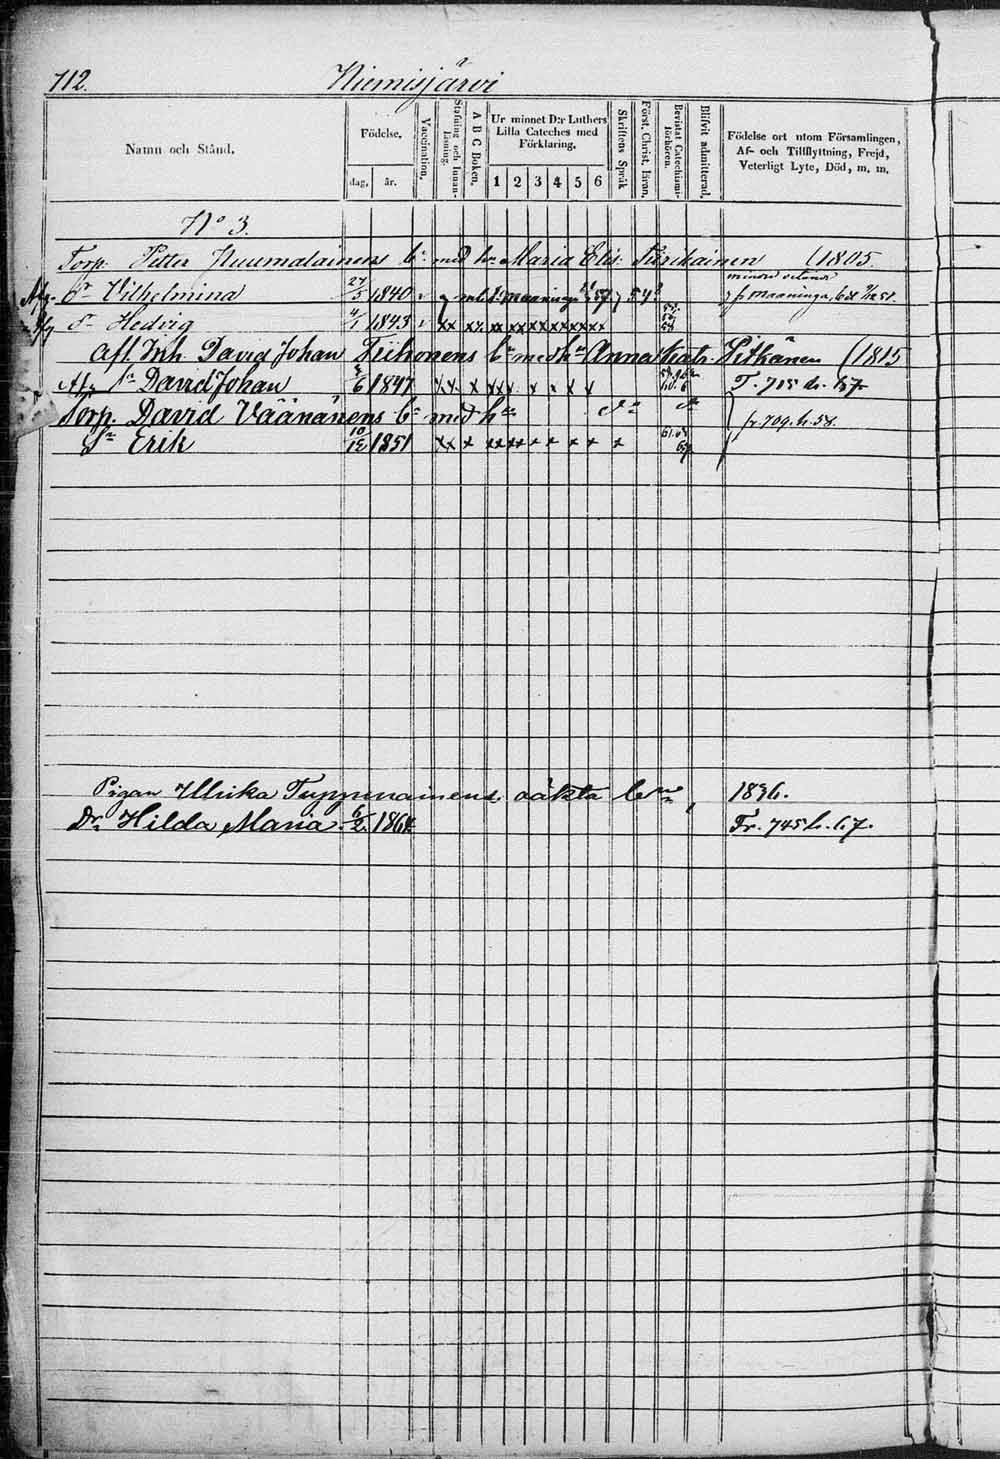 712.
Niemisjärvi
Namn och Stånd.
Födelse,
dag, år.
Vaccination.
Stafning och Innan-Läsning.
A B C Boken.
Ur minnet D:r Luthers Lilla Cateches med Förklaring,
1 2 3 4 5 6
Skriftens Språk
Först. Christ. läran.
Bevistat Catechismi-förhören.
Blifvit admitterad.
Födelse ort utom Församlingen, Af- och Tillflyttning, Frejd, Veterligt Lyte, Död, m. m.
No 3.
Torp. Petter Kuumalainens bn med hu Maria Elis. (1805.
Afg. dr Vilhelmina 27/5 1840 fr Maaninga
Afg dr Hedvig 4/1 1843 xx xx xx xx xx xx xx xx
Afl. Inh. David Johan Tiihonens bn med hu Anna Pitkänen (1815
Afg sn David Johan 1847 T. 715 h. 67
Torp. David Väänänens bn med hu fr. 709. h. 58.
Sn Erik 10/12 1851
Pigan Ullrika Tuppurainens oäkta bn 1836.
Dr Hilda Maria 6/2 1864. Fr. 745 h. 67.